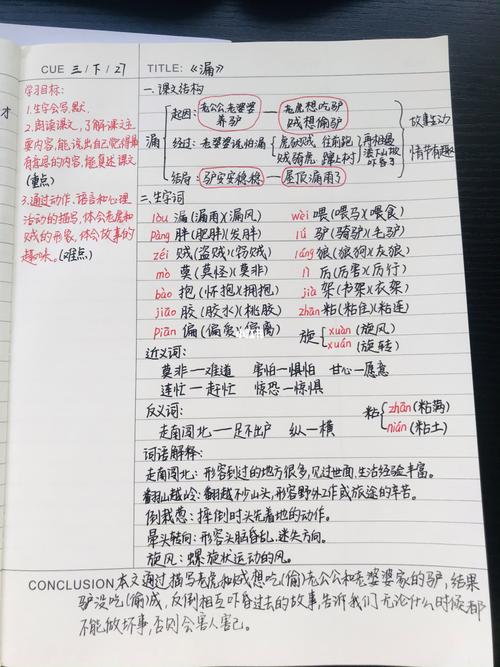 CUE 三/下/27
TITLE:《漏》
学习目标:
1.生字会写,默.
2.阅读课文,了解课文主
要内容,能说出自己觉得最
有意思的内容,能复述课文
(重点)
3.通过动作、语言和心理
活动的描写,体会老虎和
贼的形象,体会故事的
趣味。(难点)
一.课文结构
漏
起因: 老公公,老婆婆
养驴
老虎想吃驴
贼想偷驴
经过: 老婆婆说怕漏
虎驮贼 往前跑
贼骑虎 蹿上树
结局: 驴安安稳稳
屋顶漏雨了
故事生动
情节有趣
二.生字词
lòu 漏(漏雨)(漏风) wèi 喂(喂马)(喂食)
pàng 胖(肥胖)(发胖) lǘ 驴(骑驴)(毛驴)
zéi 贼(盗贼)(窃贼) láng 狼(狼狗)(灰狼)
mò 莫(莫怪)(莫非) lì 厉(厉害)(厉行)
bào 抱(怀抱)(拥抱) jià 架(书架)(衣架)
jiāo 胶(胶水)(桃胶) zhān 粘(粘住)(粘连)
piān 偏(偏爱)(偏离)
旋 xuàn (旋风)
xuán (旋转)
近义词:
莫非—难道 害怕—惧怕 甘心—愿意
连忙—赶忙 惊恐—惊惧
反义词:
走南闯北——足不出户 纵—横
粘 zhān (粘满)
nián (粘土)
词语解释:
走南闯北: 形容到过的地方很多,见过世面,生活经验丰富。
翻山越岭: 翻越不少山头,形容野外工作或旅途的辛苦。
倒栽葱: 摔倒时头先着地的动作。
晕头转向: 形容头脑昏乱,迷失方向。
旋风: 螺旋状运动的风。
CONCLUSION 本文通过描写老虎和贼想吃(偷)老公公和老婆婆家的驴,结果
驴没吃(偷)成,反倒相互吓昏过去的故事,告诉我们无论什么时候都
不能做坏事,否则会害人害己。